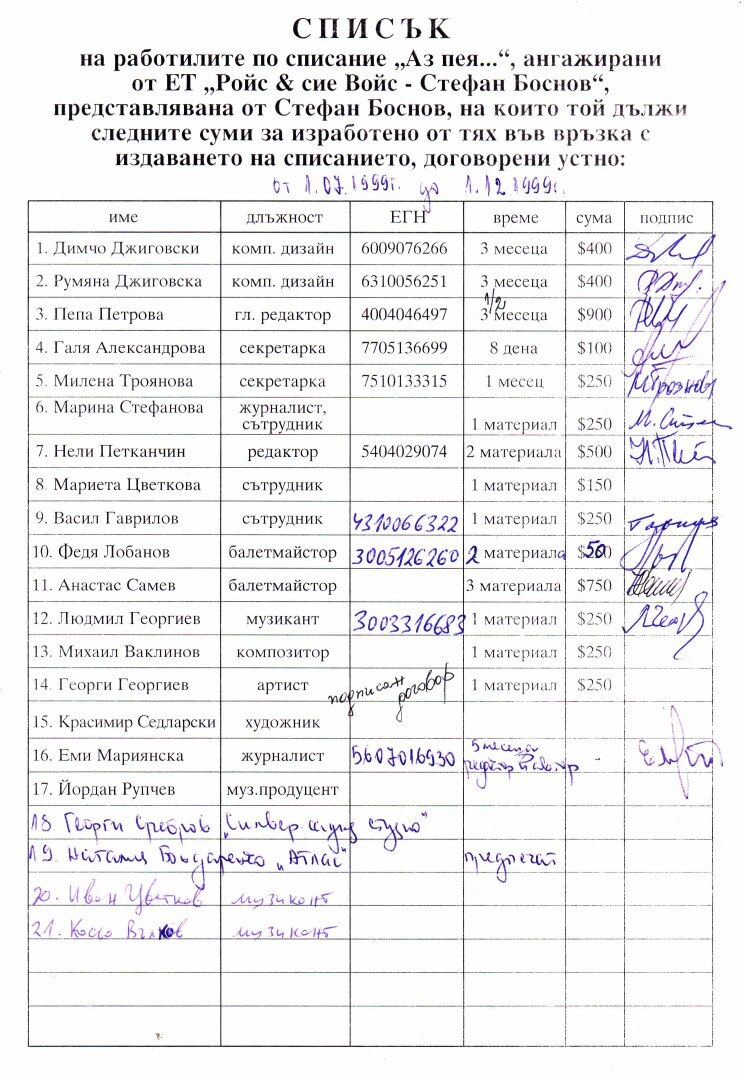 СПИСЪК
на работилите по списание „Аз пея...“, ангажирани
от ЕТ „Ройс & сие Войс - Стефан Боснов“,
представлявана от Стефан Боснов, на които той дължи
следните суми за изработено от тях във връзка с
издаването на списанието, договорени устно:
от 1.07.1999г. до 1.12 1999г.
име длъжност ЕГН време сума подпис
1. Димчо Джиговски комп. дизайн 6009076266 3 месеца $400
2. Румяна Джиговска комп. дизайн 6310056251 3 месеца $400
3. Пепа Петрова гл. редактор 4004046497 3 1/2 месеца $900
4. Галя Александрова секретарка 7705136699 8 дена $100
5. Милена Троянова секретарка 7510133315 1 месец $250
6. Марина Стефанова журналист,
сътрудник 1 материал $250
7. Нели Петканчин редактор 5404029074 2 материала $500
8. Мариета Цветкова сътрудник 1 материал $150
9. Васил Гаврилов сътрудник 4310066322 1 материал $250
10. Федя Лобанов балетмайстор 3005126260 2 материала $50
11. Анастас Самев балетмайстор 3 материала $750
12. Людмил Георгиев музикант 3003316683 1 материал $250
13. Михаил Ваклинов композитор 1 материал $250
14. Георги Георгиев артист подписан договор 1 материал $250
15. Красимир Седларски художник
16. Еми Мариянска журналист 5607016930 5 месеца
17. Йордан Рупчев муз.продуцент
18 Георги Сребров студио“
19. Наталия Бондаренко „Атлас“ предпечат
20. Иван Цветков музикант
21. Косьо Вълков музикант